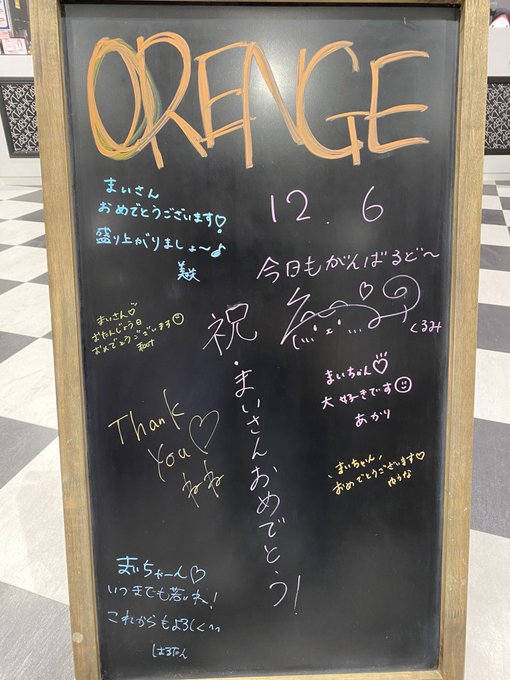 ORENGE
まいさん
おめでとうございます♡
盛り上がりましょ〜♪
12.6
今日もがんばるど〜
くるみ
まいさん♡
おたんじょう日
おめでとうございます☺
祝・まいさんおめでとう!
まいちゃん♡
大好きです☺
あかり
Thank
You♡
ねね
まいちゃん
おめでとうございます♡
ゆうな
まいちゃーん♡
いつまでも若いね!
これからもよろしくっっ